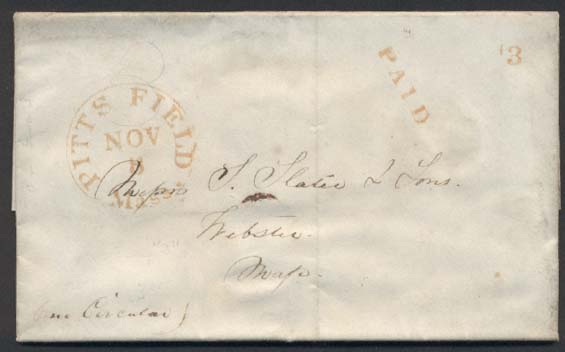 PITTS FIELD
NOV
Mass
PAID
3
Messrs S. Slater & Sons.
Webster.
Mass.
Circular)